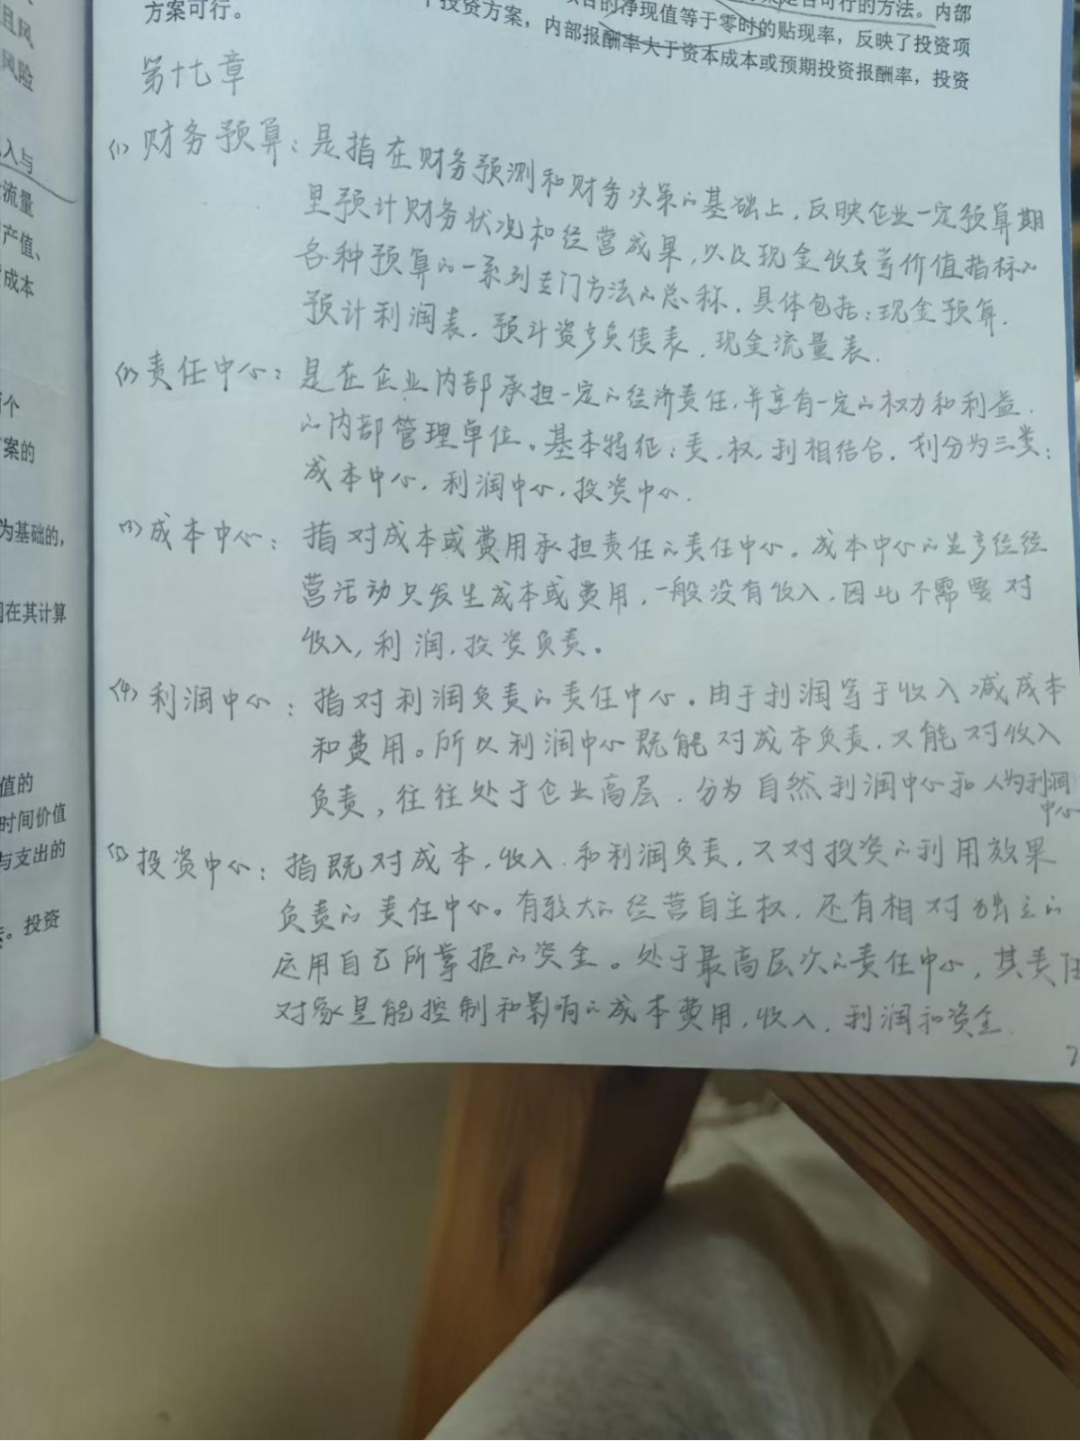 且风
风险
入与
流量
产值、
成本
个
案的
为基础的，
在其计算
值的
时间价值
与支出的
。投资
是否可行的方法。内部
目的净现值等于零时的贴现率，反映了投资项
方案可行。
个投资方案，内部报酬率大于资本成本或预期投资报酬率，投资
第十七章
(1) 财务预算：是指在财务预测和财务决策的基础上，反映企业一定预算期
里预计财务状况和经营成果，以及现金收支等价值指标的
各种预算的一系列专门方法的总称，具体包括：现金预算．
预计利润表．预计资产负债表．现金流量表．
(2) 责任中心：是在企业内部承担一定的经济责任，并享有一定的权力和利益．
的内部管理单位。基本特征：责，权，利相结合．划分为三类：
成本中心，利润中心，投资中心．
(3) 成本中心：指对成本或费用承担责任的责任中心。成本中心的生产经经
营活动只发生成本或费用，一般没有收入，因此不需要对
收入，利润，投资负责。
(4) 利润中心：指对利润负责的责任中心。由于利润等于收入减成本
和费用。所以利润中心既能对成本负责，又能对收入
负责，往往处于企业高层．分为自然利润中心和人为利润
中心
(5) 投资中心：指既对成本，收入．和利润负责，又对投资的利用效果
负责的责任中心。有较大的经营自主权，还有相对独立的
运用自己所掌握的资金。处于最高层次的责任中心，其责任
对象是能控制和影响的成本费用，收入，利润和资金
7